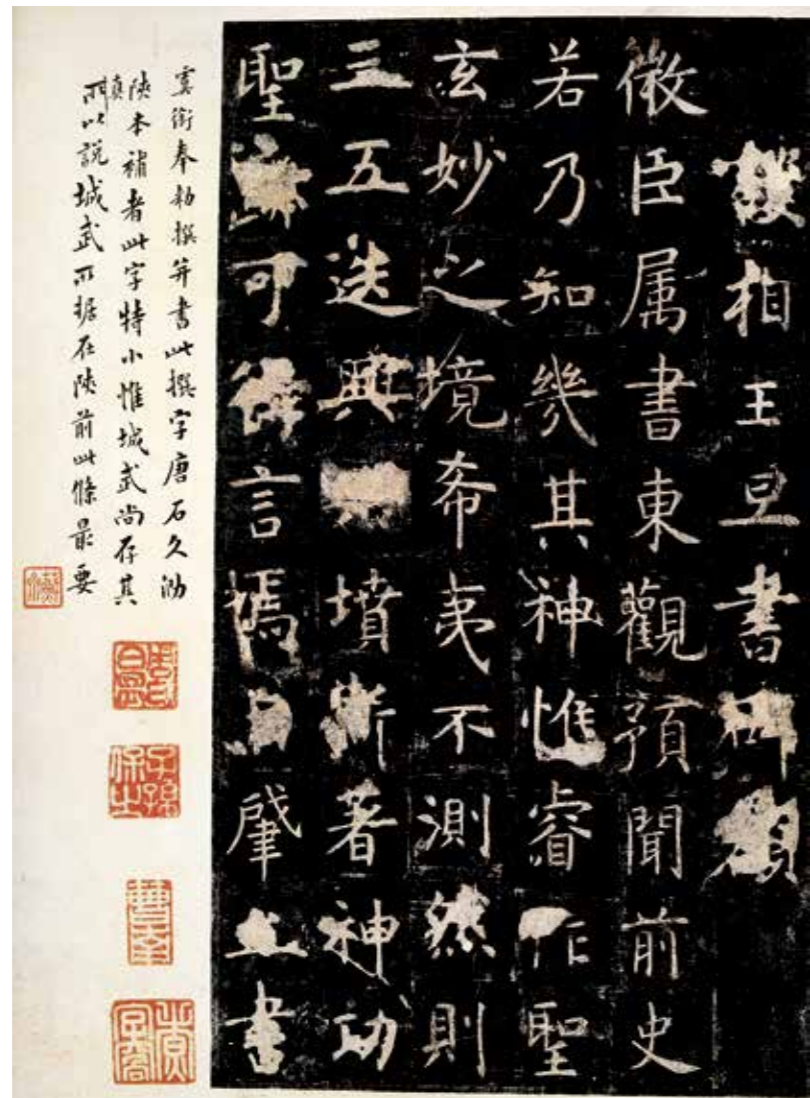 護相王旦書碑額
微臣属書東觀預聞前史
若乃知幾其神惟睿作聖
玄妙之境希夷不測然則
三五迭興典墳斯著神功
聖跡可得言焉自肇立書
虞銜奉勅撰并書此撰字唐石久泐
陝本補者此字特小惟城武尚存其
真所以說城武所据在陝前此條最要
子孫保之